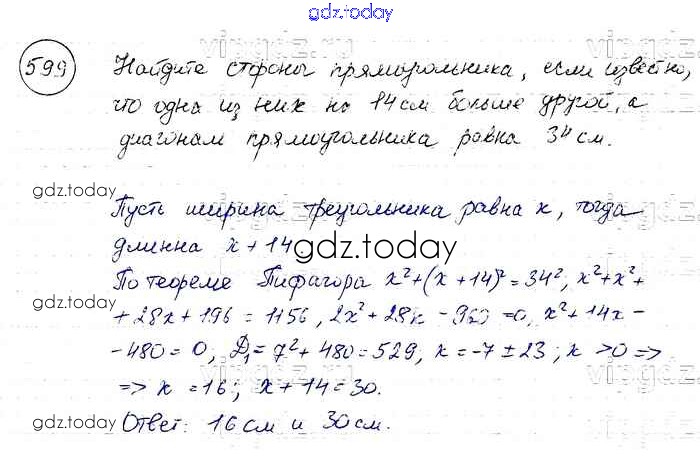 gdz.today
599
Найдите стороны прямоугольника, если известно,
что одна из них на 14 см больше другой, а
диагонам прямоугольника равна 34 см.
gdz.today
Пусть ширина треугольника равна x, тогда
длинна x + 14
gdz.today
По теореме Пифагора x² + (x + 14)² = 34², x² + x² +
gdz.today
+ 28x + 196 = 1156, 2x² + 28x - 960 = 0, x² + 14x -
- 480 = 0, Д₁ = 7² + 480 = 529, x = -7 ± 23; x > 0 =>
=> x = 16; x + 14 = 30.
gdz.today
Ответ: 16 см и 30 см.